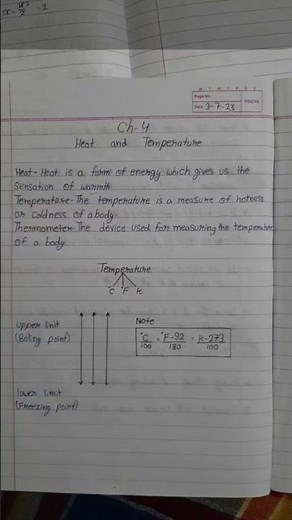 M T W T F S S
Page No.:
Date: 3-7-23
YOUVA
Ch-4
Heat and Temperature
Heat- Heat is a form of energy which gives us the
sensation of warmth
Temperature- The temperature is a measure of hotness
or coldness of a body
Thermometer- The device used for measuring the temperature
of a body.
Temperature
°C °F K
upper limit
(Boiling point)
Note
°C = °F-32 = K-273
100 180 100
lower limit
(Freezing point)